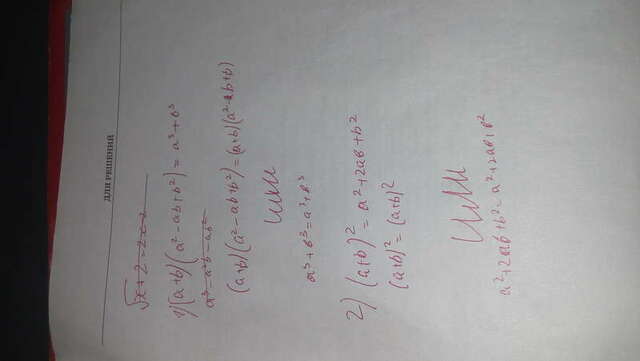 ДЛЯ РЕШЕНИЙ
1) (a+b)(a²-ab+b²)=a³+b³
a³-a²b-ab²
(a+b)(a²-ab+b²)=(a+b)(a²-ab+b)
или
a³+b³=a³+b³
2) (a+b)²=a²+2ab+b²
(a+b)²=(a+b)²
или
a²+2ab+b²=a²+2ab+b²